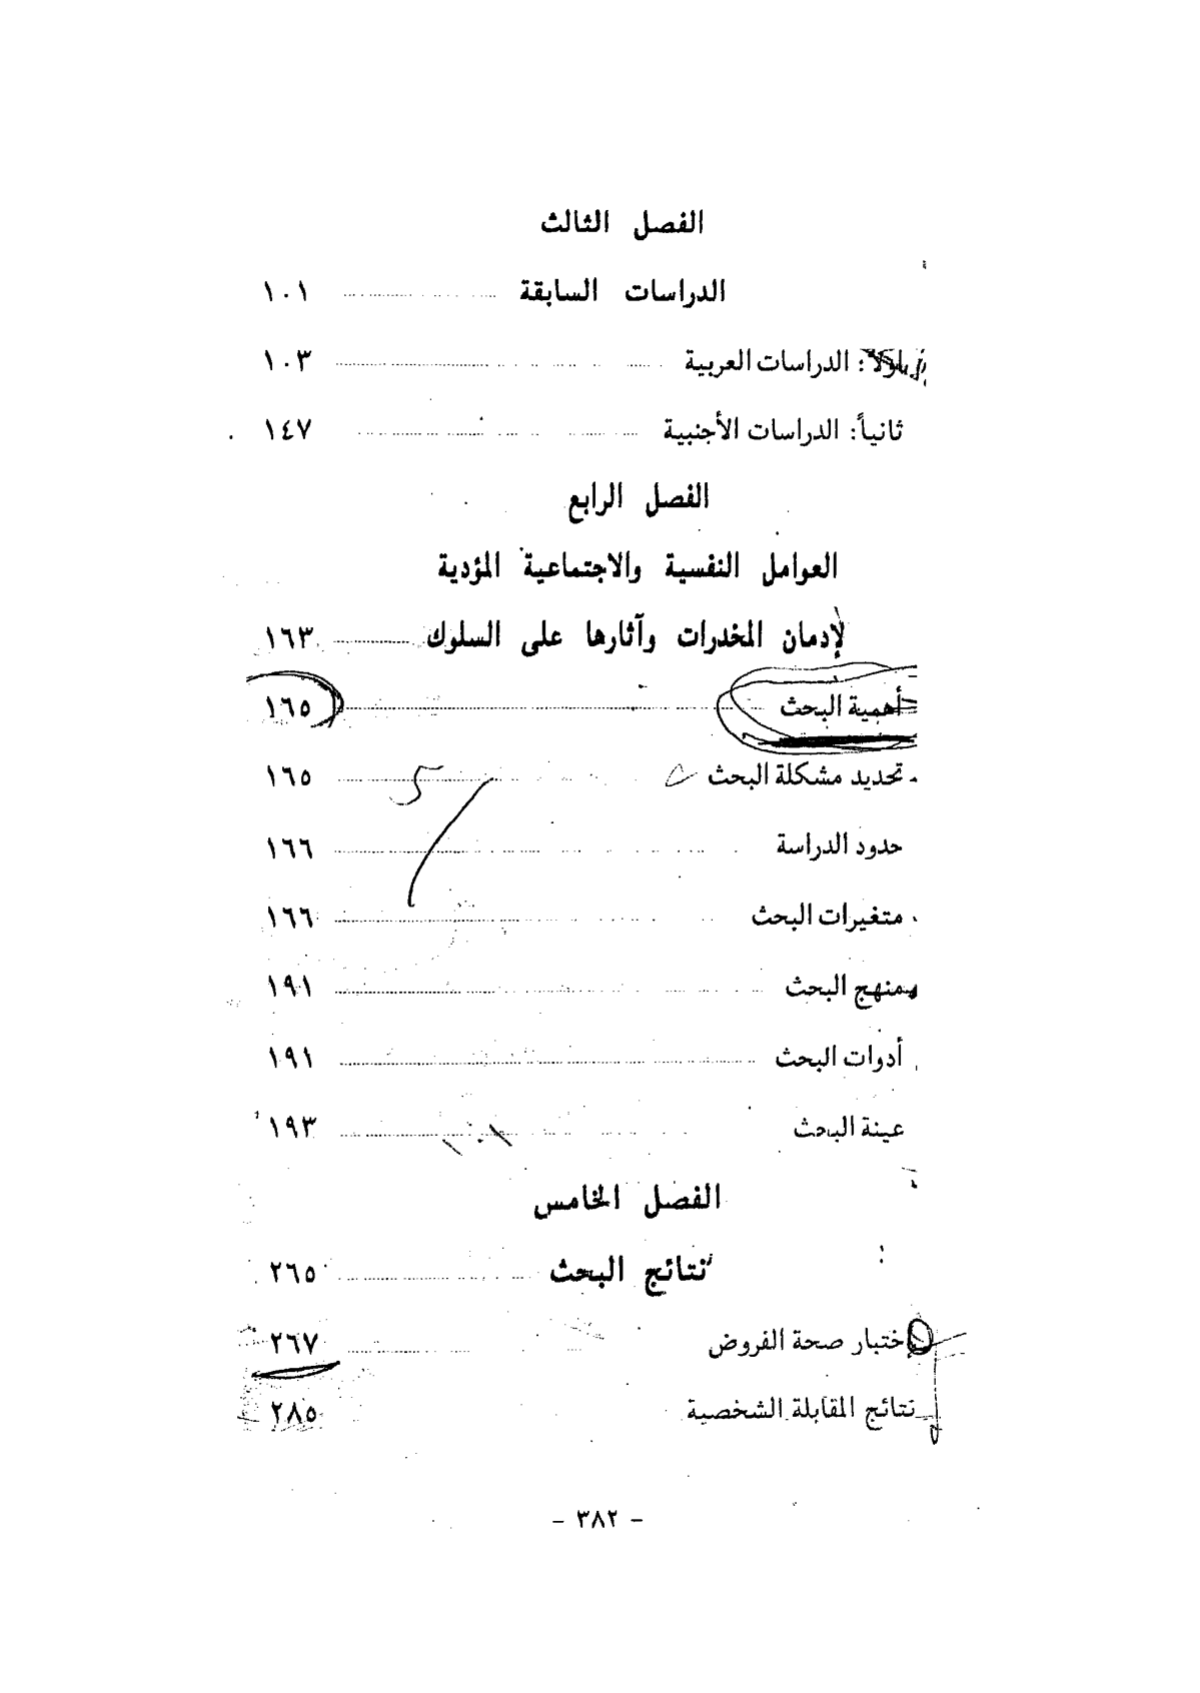 الفصل الثالث
الدراسات السابقة ١٠١
أولاً: الدراسات العربية ١٠٣
ثانياً: الدراسات الأجنبية ١٤٧
الفصل الرابع
العوامل النفسية والاجتماعية المؤدية
لإدمان المخدرات وآثارها على السلوك ١٦٣
أهمية البحث ١٦٥
تحديد مشكلة البحث ١٦٥
حدود الدراسة ١٦٦
متغيرات البحث ١٦٦
منهج البحث ١٩١
أدوات البحث ١٩١
عينة البحث ١٩٣
الفصل الخامس
نتائج البحث ٢٦٥
اختبار صحة الفروض ٢٦٧
نتائج المقابلة الشخصية ٢٨٥
- ٣٨٢ -